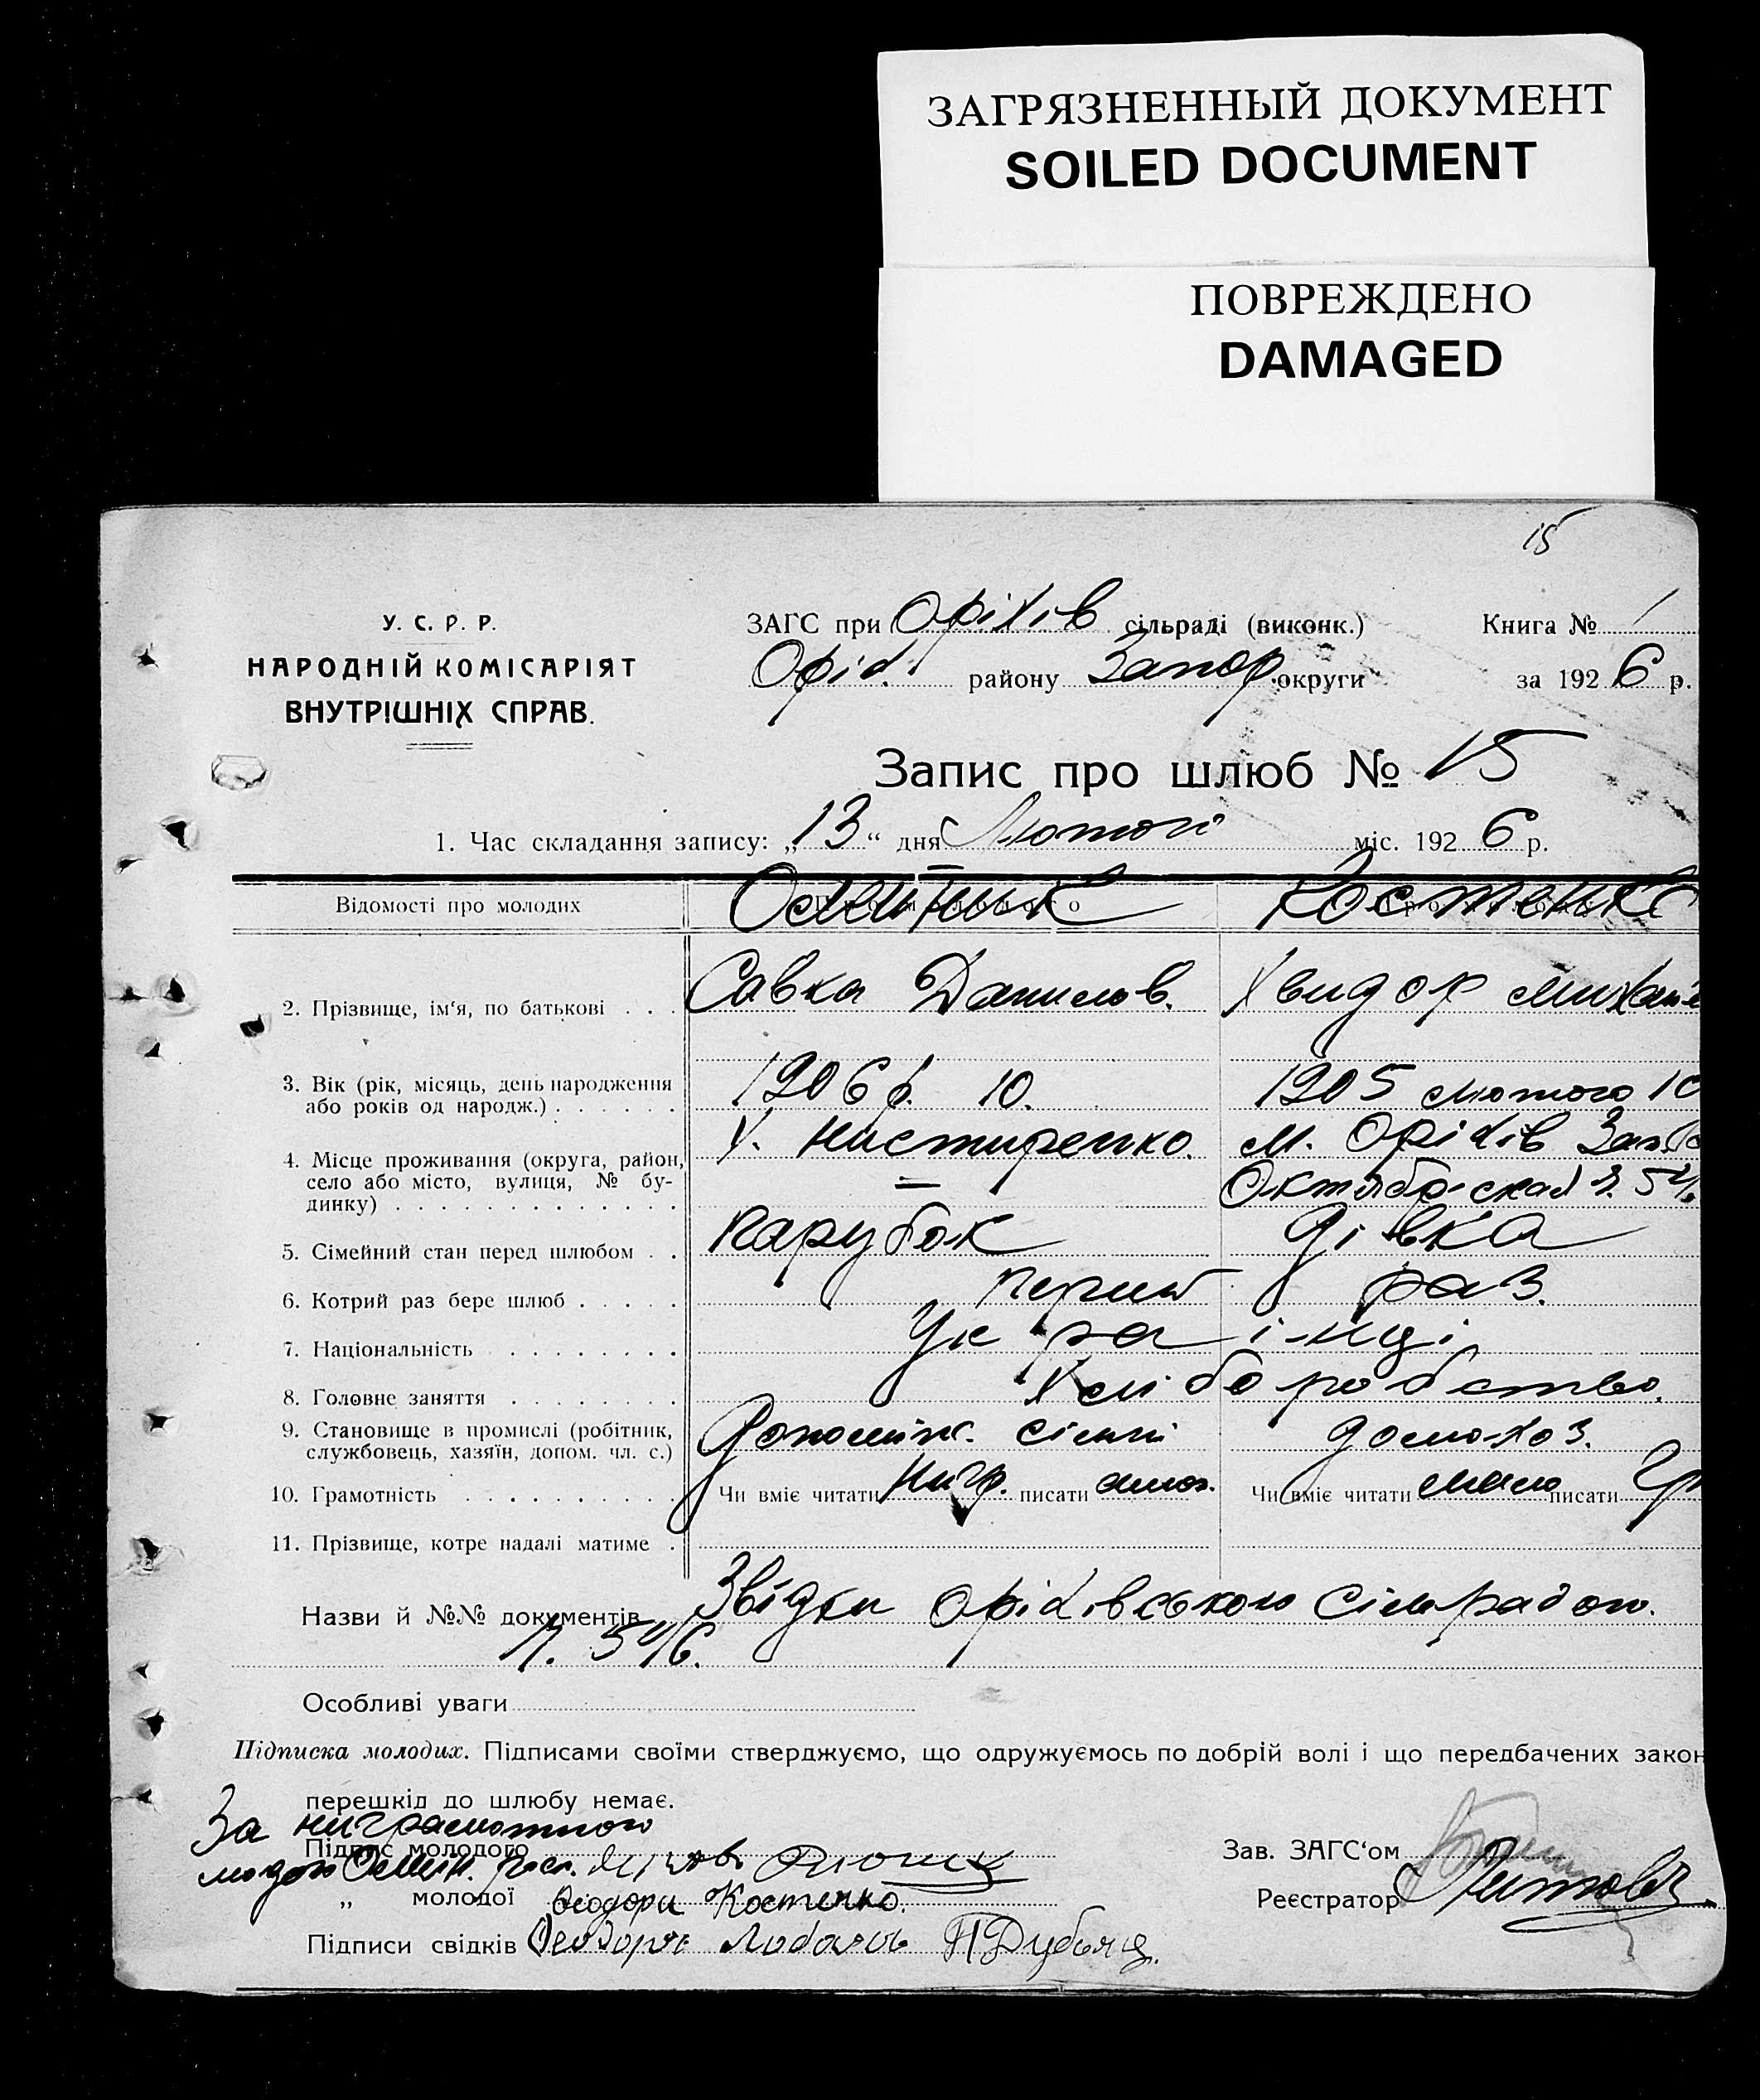 ЗАГРЯЗНЕННЫЙ ДОКУМЕНТ
SOILED DOCUMENT
ПОВРЕЖДЕНО
DAMAGED
15
У. С. Р. Р.
НАРОДНІЙ КОМІСАРІЯТ
ВНУТРІШНІХ СПРАВ.
ЗАГС при Оріхів сільраді (виконк.)
Оріх. району Запор. округи
Книга № 1
за 1926 р.
Запис про шлюб № 15
1. Час складання запису: „13“ дня Лютого міс. 1926 р.
Відомості про молодих Олейник Костенко
2. Прізвище, ім‘я, по батькові . . . Савка Данилов. Хвидор Михай
3. Вік (рік, місяць, день народження 1906 р. 10. 1905 лютого 10
або років од народж.) . . . . . .
4. Місце проживання (округа, район, Х. Нистиренко. м. Оріхів Зап.
село або місто, вулиця, № бу- Октябрьская
динку) . . . . . . . . . . . . .
5. Сімейний стан перед шлюбом . . Парубок Дівка
6. Котрий раз бере шлюб . . . . . перший раз.
7. Національність . . . . . . . . Українці
8. Головне заняття . . . . . . . . Хліборобство.
9. Становище в промислі (робітник, допоміж. сімьї домохоз.
службовець, хазяїн, допом. чл. с.)
10. Грамотність . . . . . . . . . Чи вміє читати Нигр. писати Чи вміє читати мало писати
11. Прізвище, котре надалі матиме .
Назви й №№ документів Звідки Оріхівською Сільрадою.
Особливі уваги
Підписка молодих. Підписами своїми стверджуємо, що одружуємось по добрій волі і що передбачених закон
перешкід до шлюбу немає.
За ниграмотного
Підпис молодого
„ молодої Феодори Костенко.
Підписи свідків П Дубъяд.
Зав. ЗАГС‘ом
Реєстратор